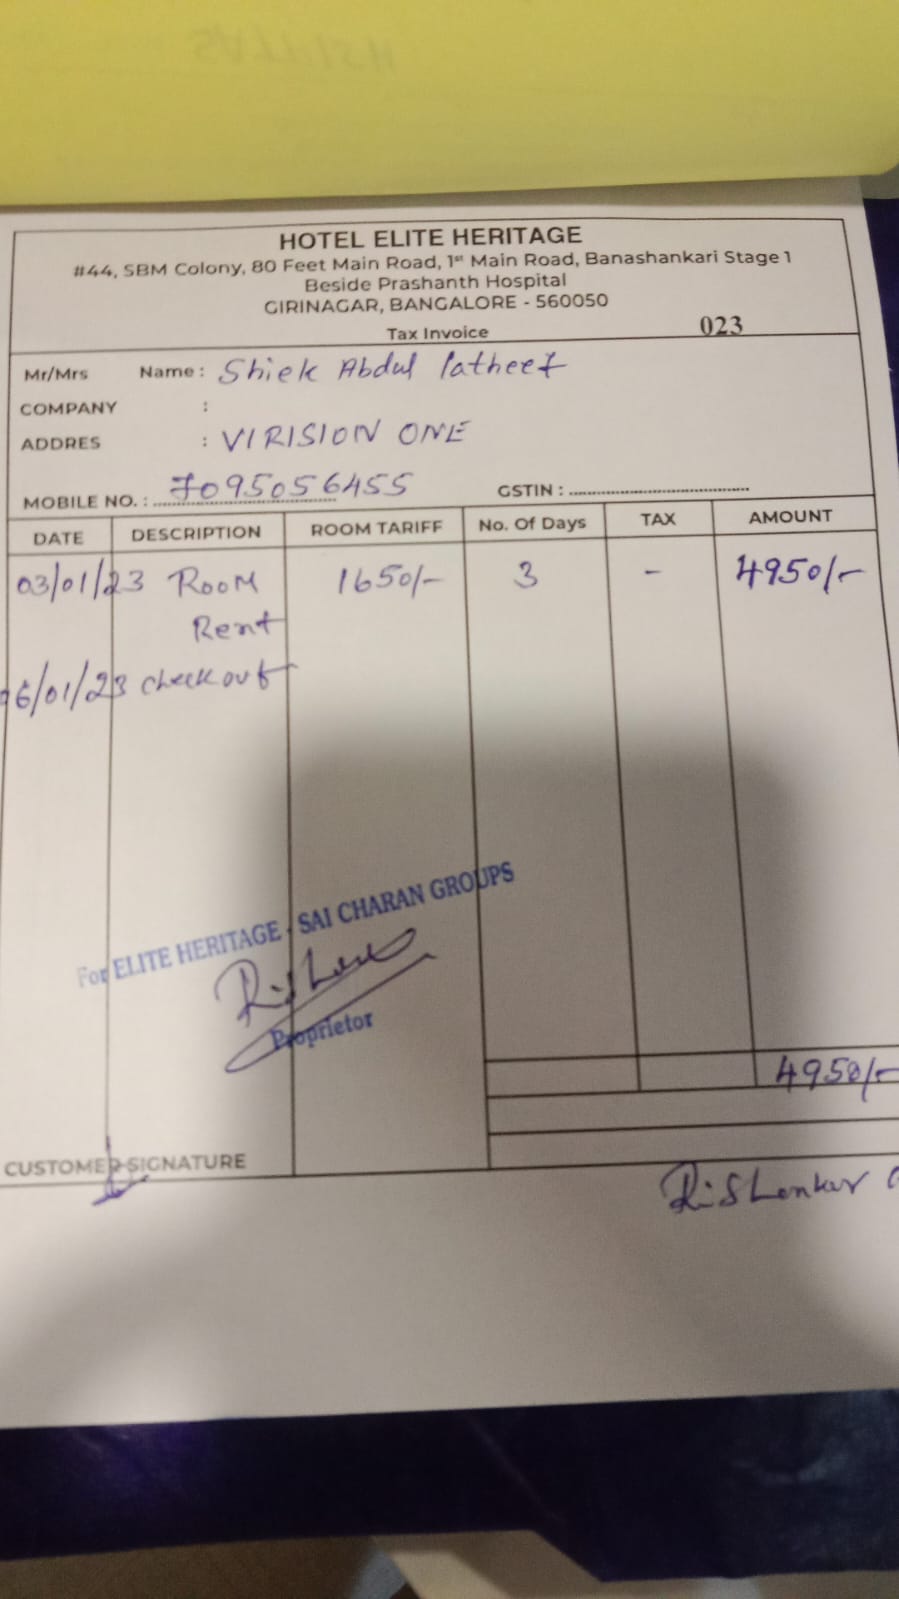 HOTEL ELITE HERITAGE
#44, SBM Colony, 80 Feet Main Road, 1st Main Road, Banashankari Stage 1
Beside Prashanth Hospital
GIRINAGAR, BANGALORE - 560050
Tax Invoice 023
Mr/Mrs Name : Shiek Abdul latheef
COMPANY :
ADDRES : VIRISION ONE
MOBILE NO. : 7095056455 GSTIN :
DATE DESCRIPTION ROOM TARIFF No. Of Days TAX AMOUNT
03/01/23 ROOM 1650/- 3 - 4950/-
Rent
06/01/23 check out
For ELITE HERITAGE - SAI CHARAN GROUPS
Proprietor
4950/-
CUSTOMER SIGNATURE